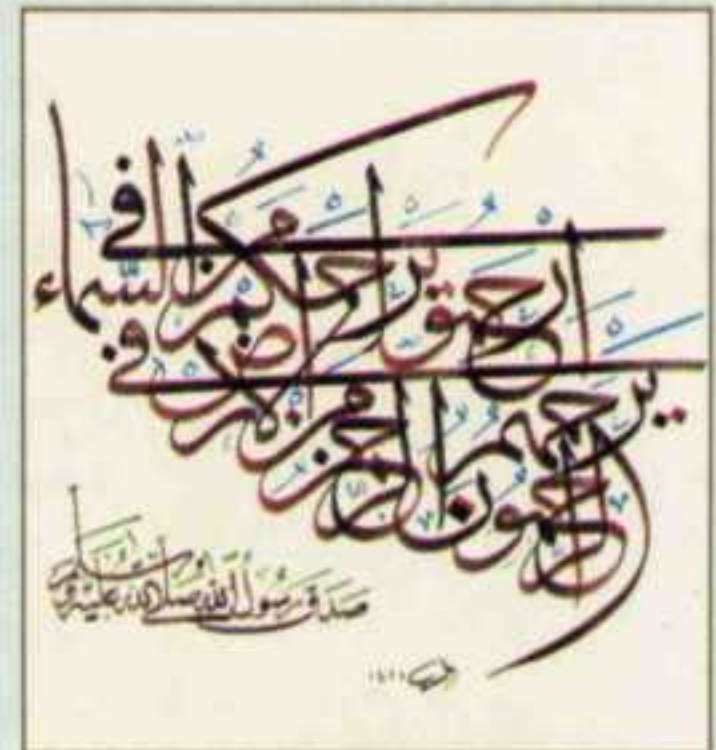 الراحمون يرحمهم الرحمن
ارحموا من في الأرض
يرحمكم من في السماء
صدق رسول الله صلى الله عليه وآله وسلم